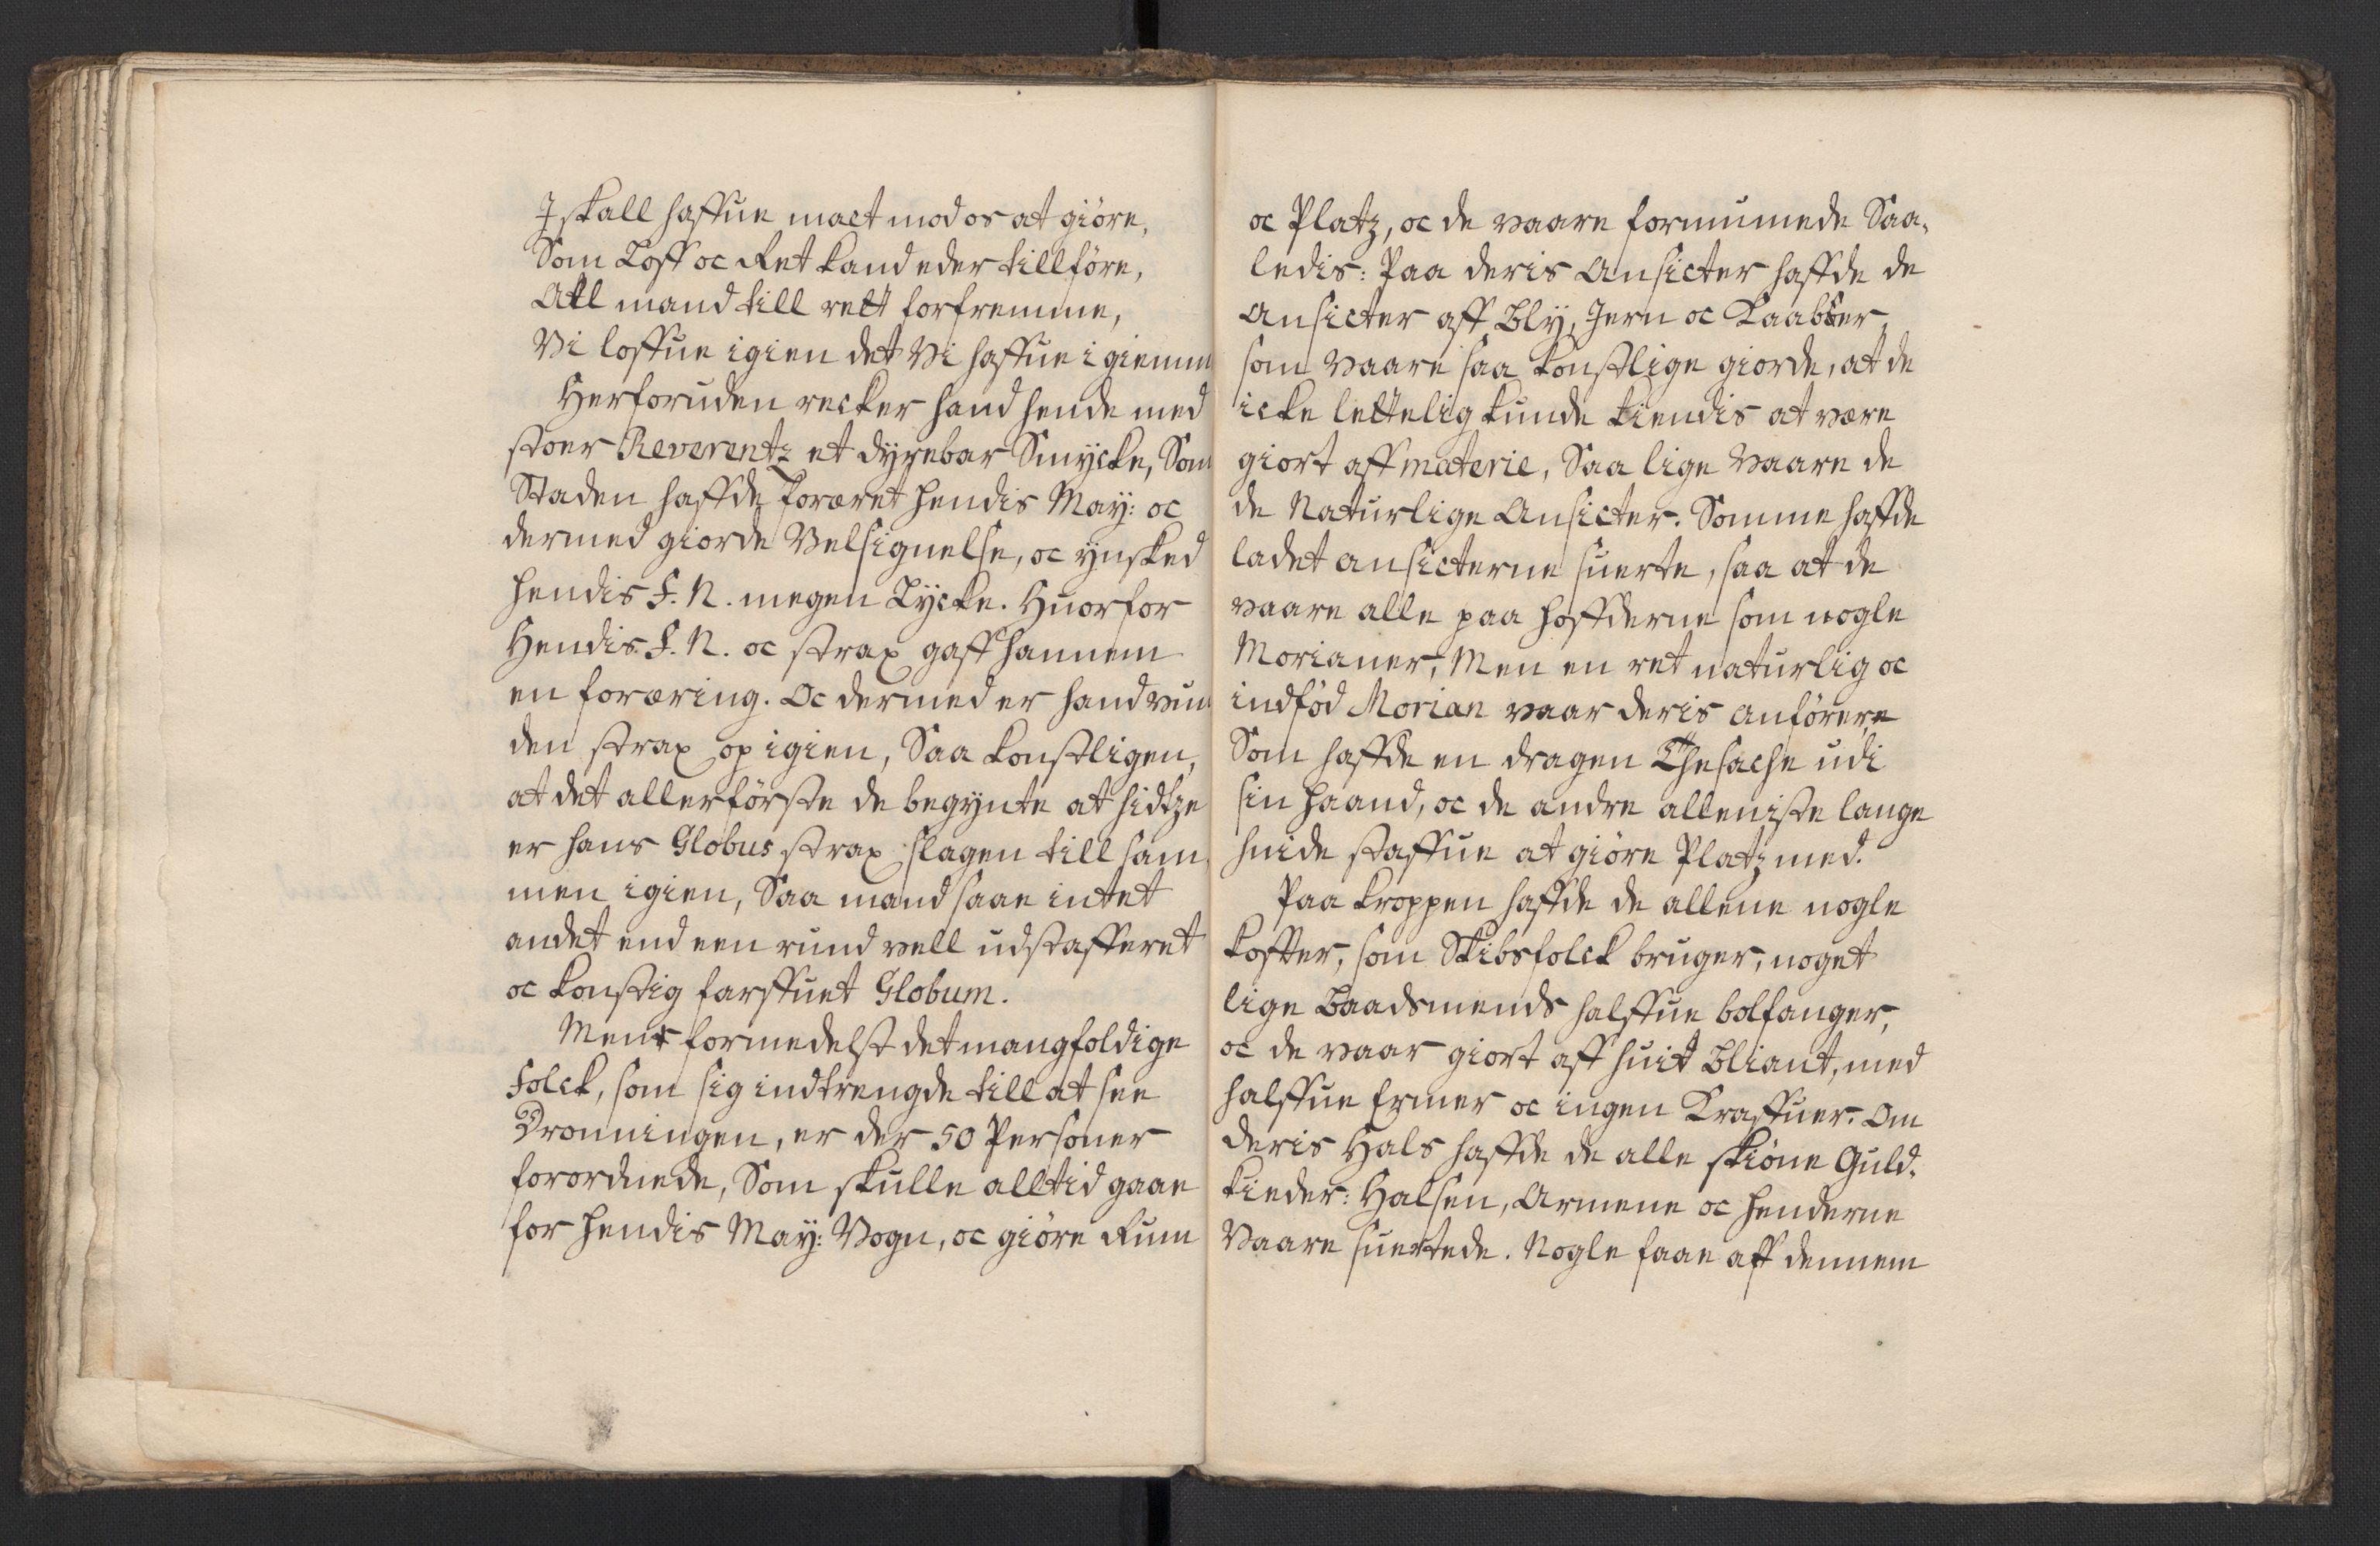 I skall haffue mact mod os at giöre,
Som Loff oc Ret kand eder tillföre,
All mand till rett forfremme,
Vi loffue igien det Vi haffue i giemm
Herforuden recker hand hende med
stoer Reverentz et dyrebar Smycke, Som
Staden haffde foræret hendis May: oc
dermed giorde Velsignelse, oc ynsked
hendis F. N. megen Lycke. Huorfor
Hendis F. N. oc strax gaff hannem
en foræring. Oc dermed er hand vun
den strax op igien, Saa konstligen,
at det allerförste de begynte at hidtze
er hans Globus strax slagen till sam
men igien, Saa mand saae intet
andet end een rund vell udstafferet
oc konstig farffuet Globum.
Mens formedelst det mangfoldige
Folck, som sig indtrengde till at see
Dronningen, er der 50 Personer
forordnede, Som skulle alltid gaae
for hendis May: Vogn, oc giöre Rum
oc Platz, oc de vaare formummede Saa-
ledis: Paa deris Ansicter haffde de
Ansicter aff Bly, Jern oc Kaabber,
som vaare saa konstlige giorde, at de
icke lettelig kunde kiendis at være
giort aff materie, Saa lige vaare de
de Naturlige Ansicter. Somme haffde
ladet ansicterne suerte, saa at de
vaare alle paa hoffderne som nogle
Morianer, Men en ret naturlig oc
indföd Morian vaar deris anförere
Som haffde en dragen Thesache udi
sin haand, oc de andre alleniste lange
huide staffue at giöre Platz med.
Paa kroppen haffde de allene nogle
koffter, som Skibsfolck bruger, noget
lige Baadsmends halffue bolfanger,
oc de vaar giort aff huit Bliant, med
halffue Ermer oc ingen Kraffuer. Om
deris Hals haffde de alle skiöne Guld-
kieder: Halsen, Armene oc henderne
Vaare suertede. Nogle faae aff dennem